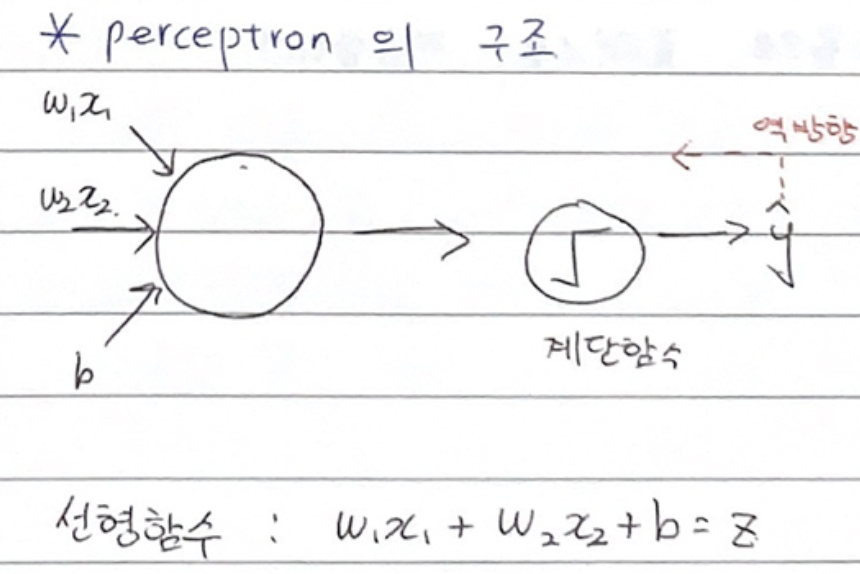 * perceptron 의 구조
w₁x₁
역방향
w₂x₂
ŷ
b
계단함수
선형함수 : w₁x₁ + w₂x₂ + b = z